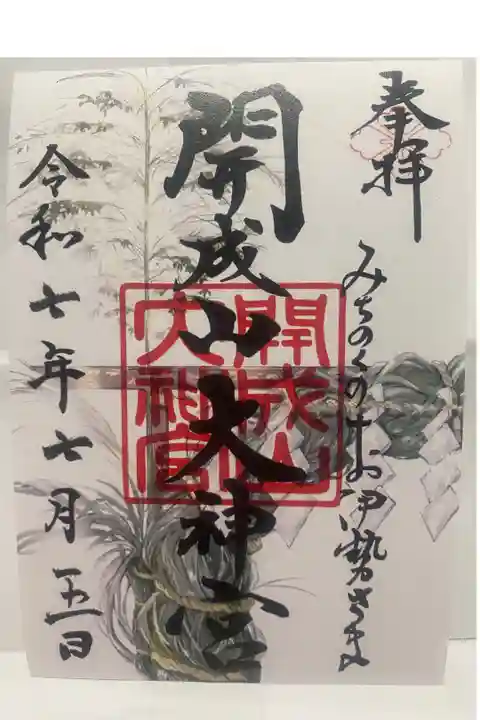 奉拝
みちのくのお伊勢さま
開成山大神宮
開成山
大神宮
令和七年七月五日